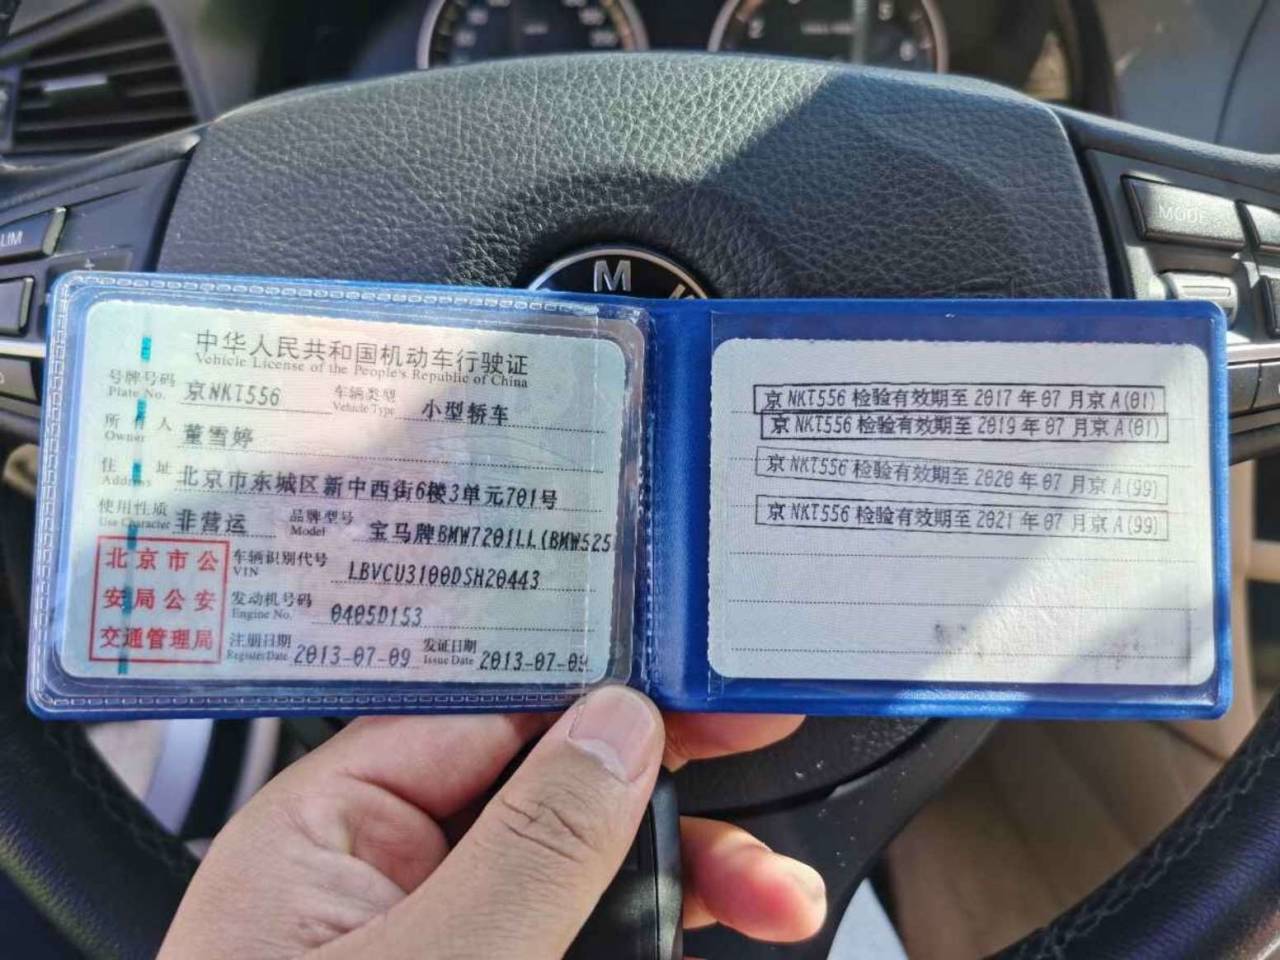 中华人民共和国机动车行驶证
Vehicle License of the People's Republic of China
号牌号码 京NKT556 车辆类型 小型轿车
Plate No. Vehicle Type
所有人 董雪婷
Owner
住址 北京市东城区新中西街6楼3单元701号
Address
使用性质 非营运 品牌型号 宝马牌BMW7201LL(BMW525
Use Character Model
北京市公安局公安交通管理局
车辆识别代号 LBVCU3100DSH20443
VIN
发动机号码 0405D153
Engine No.
注册日期 2013-07-09 发证日期 2013-07-09
Register Date Issue Date
京NKT556检验有效期至2017年07月京A(01)
京NKT556检验有效期至2019年07月京A(01)
京NKT556检验有效期至2020年07月京A(99)
京NKT556检验有效期至2021年07月京A(99)
M
MODE
LIM